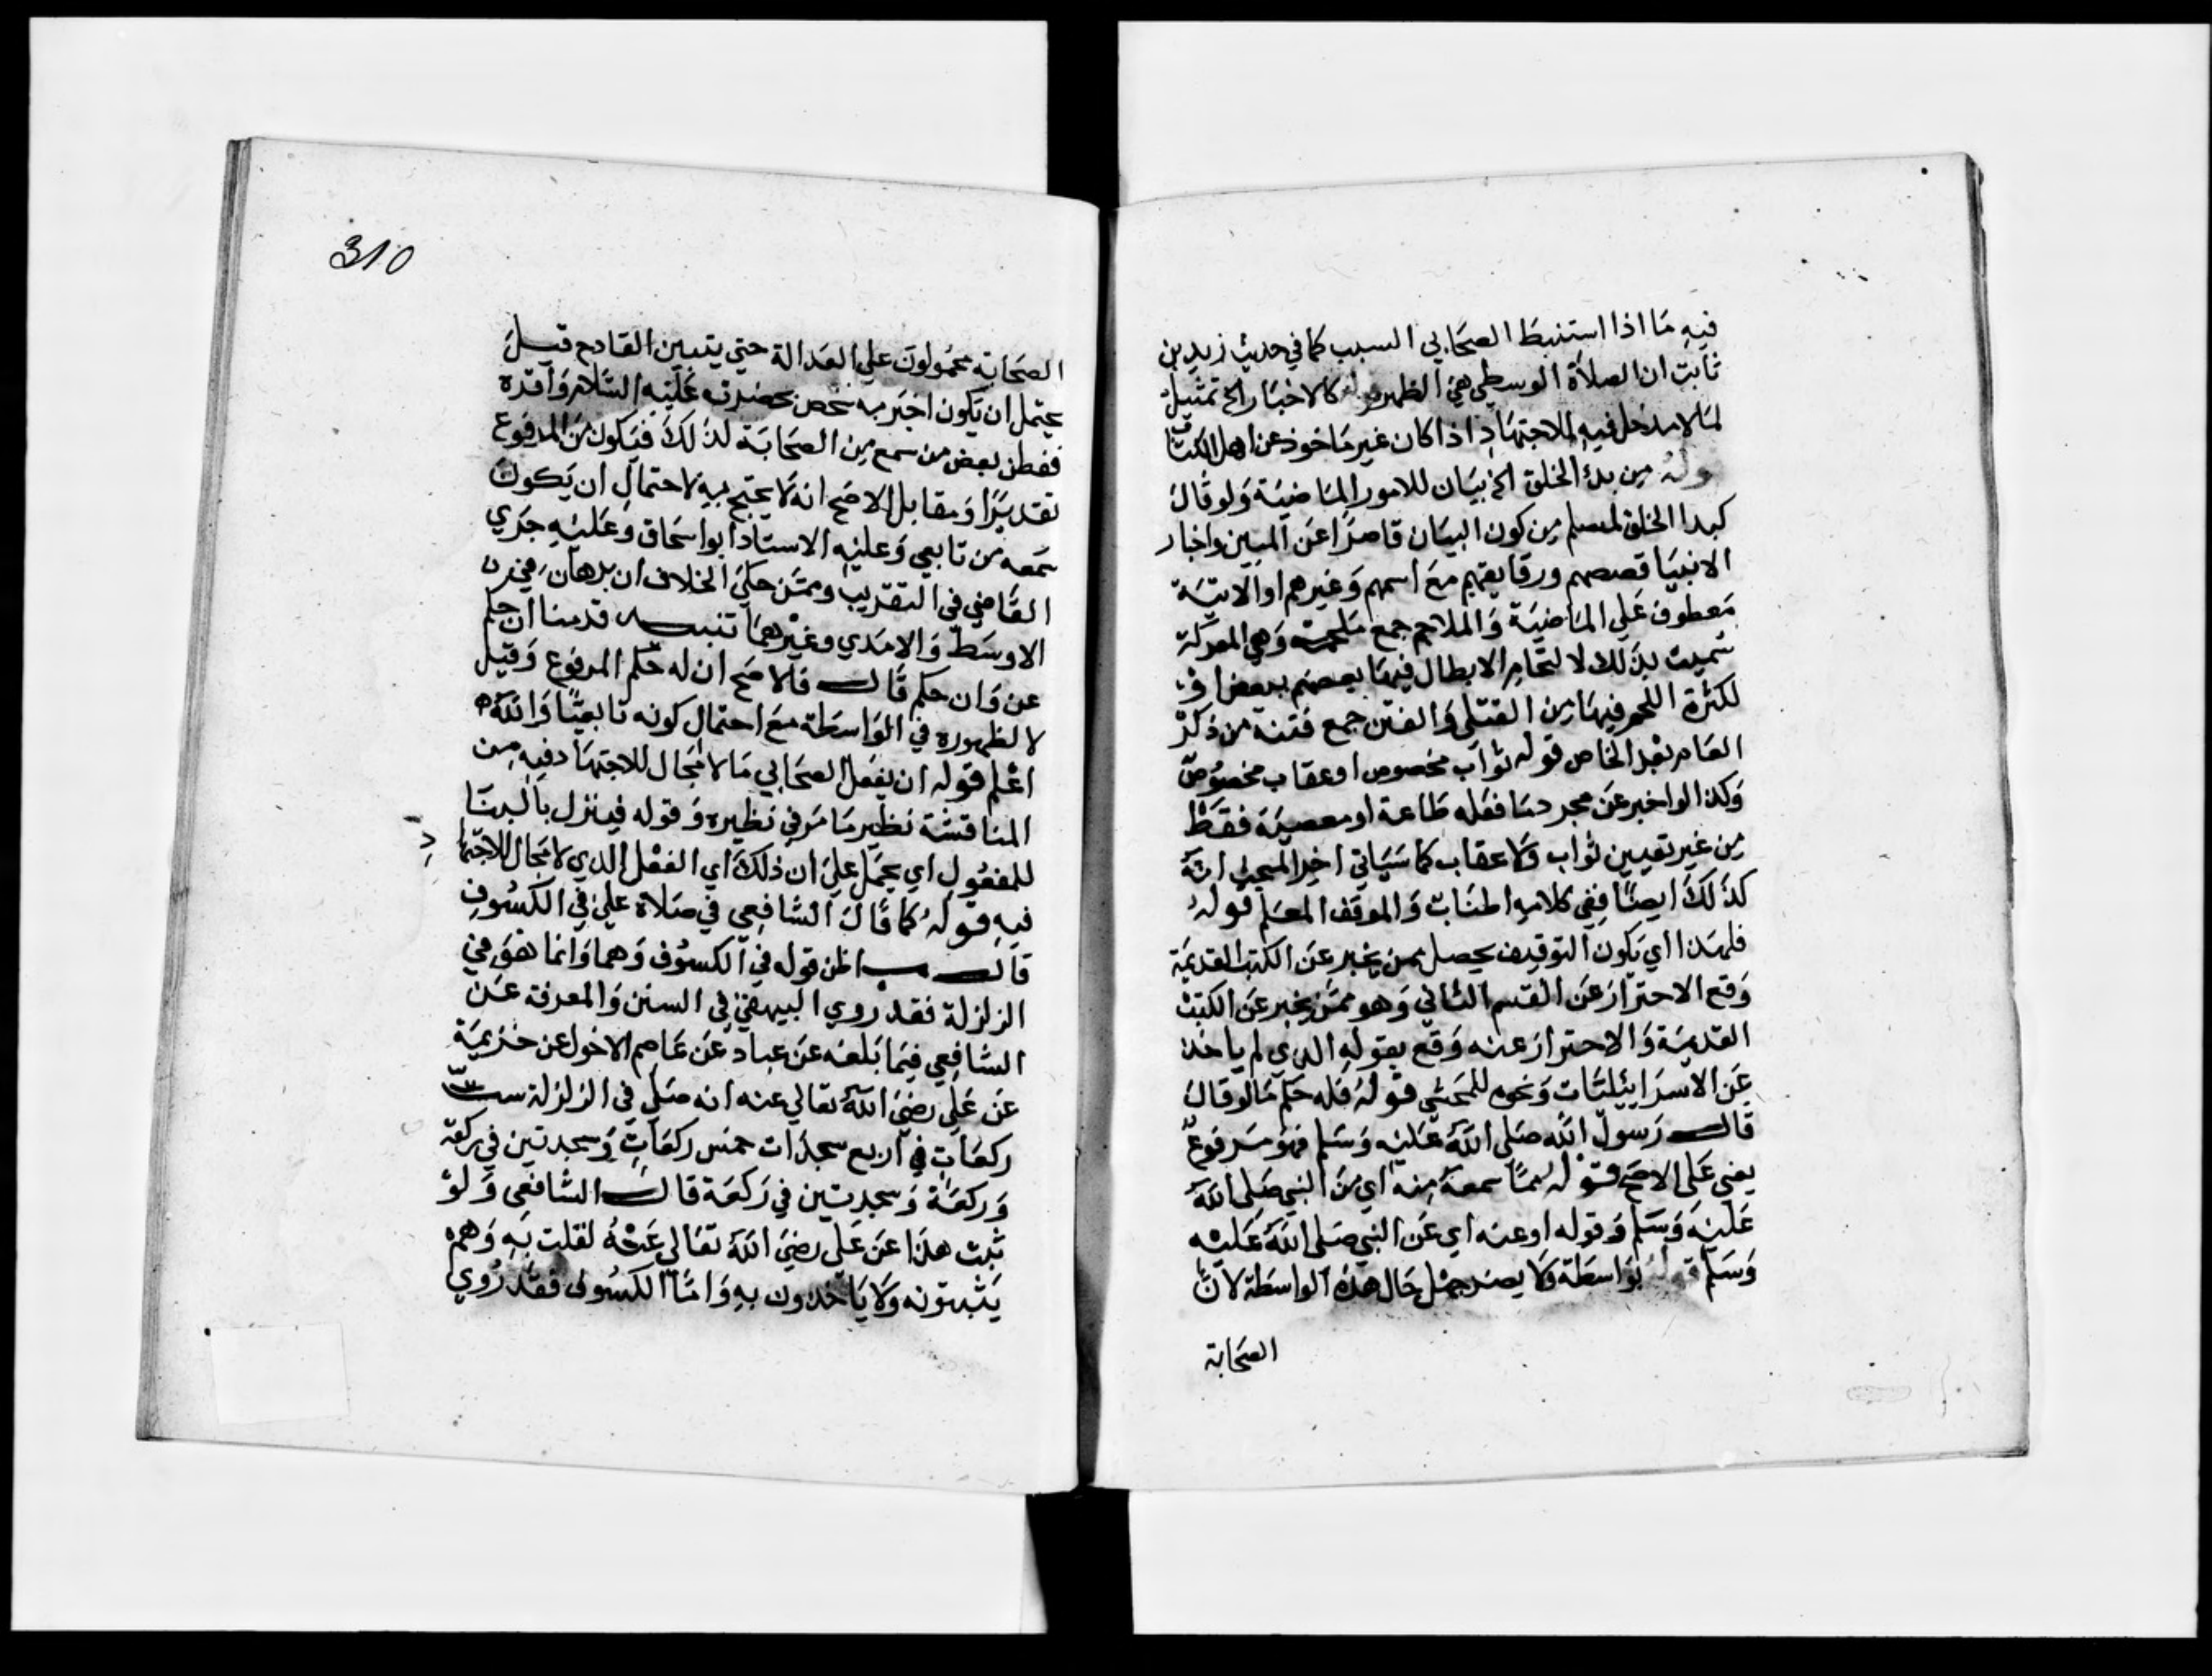 فيه ما اذا استنبط الصحابي السبب كما في حديث زيد بن
ثابت ان الصلاة الوسطي هي الظهر قوله كالاخبار الخ تمثيل
لما لا مدخل فيه للاجتهاد اذا كان غير ماخوذ عن اهل الكتاب
قوله من بدؤ الخلق الخ بيان للامور الماضية ولو قال
كبدا الخلق لسلم من كون البيان قاصرا عن المبين واخبار
الانبيا قصصهم ووقايعهم مع اممهم وغيرهم او الاتية
معطوف علي الماضية والملاحم جمع ملحمة وهي المعركة
سميت بذلك لالتحام الابطال فيها بعضهم ببعض او
لكثرة اللحم فيها من القتلي والفتن جمع فتنة من ذكر
العام بعد الخاص قوله ثواب مخصوص او عقاب مخصوص
وكذا لو اخبر عن مجرد ما فعله طاعة او معصية فقط
من غير تعيين ثواب ولا عقاب كما سياتي اخر المبحث انه
كذلك ايضا ففي كلامه اطناب والموقف المعلم قوله
فلهذا اي بكون التوقيف يحصل بمن يخبر عن الكتب القديمة
وقع الاحتراز عن القسم الثاني وهو ممن يخبر عن الكتب
القديمة والاحتراز عنه وقع بقوله الذي لم ياخذ
عن الاسرايئليات ونحوه للمحشي قوله فله حكم ما لو قال
قال رسول الله صلى الله عليه وسلم فهو مرفوع
يعني على الاصح قوله مما سمعه منه اي من النبي صلى الله
عليه وسلم وقوله او عنه اي عن النبي صلى الله عليه
وسلم قوله بواسطة ولا يضر جهل حال هذه الواسطة لان
الصحابة
310
الصحابة محمولون علي العدالة حتي يتبين القادح قيل
يحتمل ان يكون اخبر به شخص بحضرته عليه السلام واقره
ففطن بعض من سمع من الصحابة لذلك فيكون من المرفوع
تقديرا ومقابل الاصح انه لا يحتج به لاحتمال ان يكون
سمعه من تابعي وعليه الاستاذ ابو اسحاق وعليه جري
القاضي في التقريب وممن حكي الخلاف ابن برهان في
الاوسط والامدي وغيرهما تنبيه قدمنا ان حكم
عن وان حكم قال فالاصح ان له حكم المرفوع وقيل
لا لظهوره في الواسطة مع احتمال كونه تابعيا والله
اعلم قوله ان يفعل الصحابي ما لا مجال للاجتهاد فيه من
المناقشة نظير ما مر في نظيره وقوله فينزل بالبنا
للمفعول اي يحمل علي ان ذلك اي الفعل الذي لا مجال للاجتها
د
فيه قوله كما قال الشافعي في صلاة علي في الكسوف
قال ب اظن قوله في الكسوف وهما وانما هو في
الزلزلة فقد روي البيهقي في السنن والمعرفة عن
الشافعي فيما بلغه عن عباد عن عاصم الاحول عن خزيمة
عن علي رضي الله تعالي عنه انه صلي في الزلزلة ست
ركعات في اربع سجدات خمس ركعات وسجدتين في ركعة
وركعة وسجدتين في ركعة قال الشافعي ولو
ثبت هذا عن علي رضي الله تعالي عنه لقلت به وهم
يثبتونه ولا ياخذون به واما الكسوف فقد روي